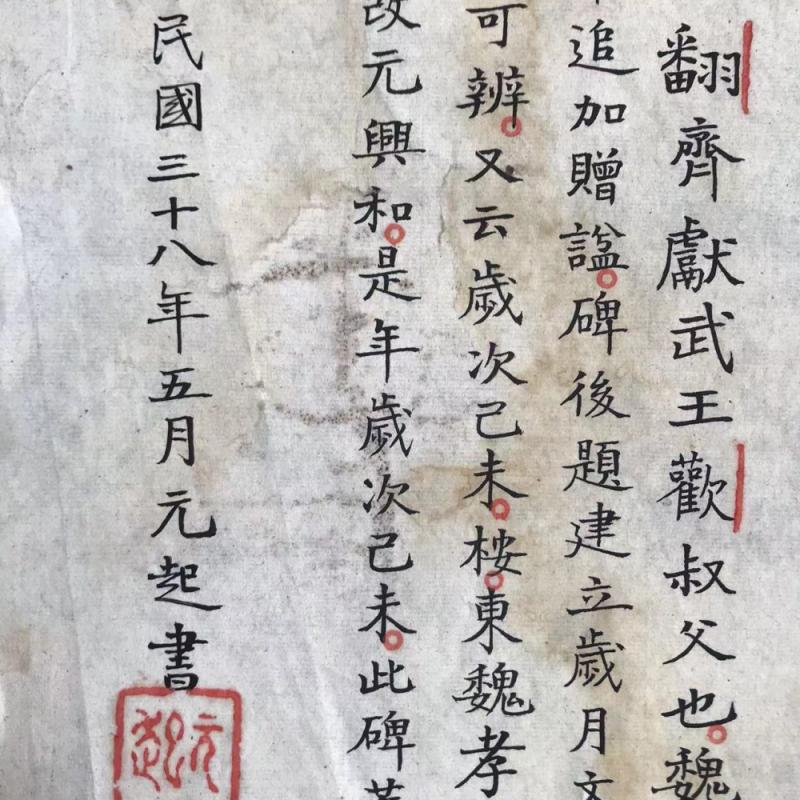 翻齊獻武王歡叔父也魏
追加贈諡碑後題建立歲月文
可辨又云歲次己未桉東魏孝
改元興和是年歲次己未此碑
民國三十八年五月元起書
元起